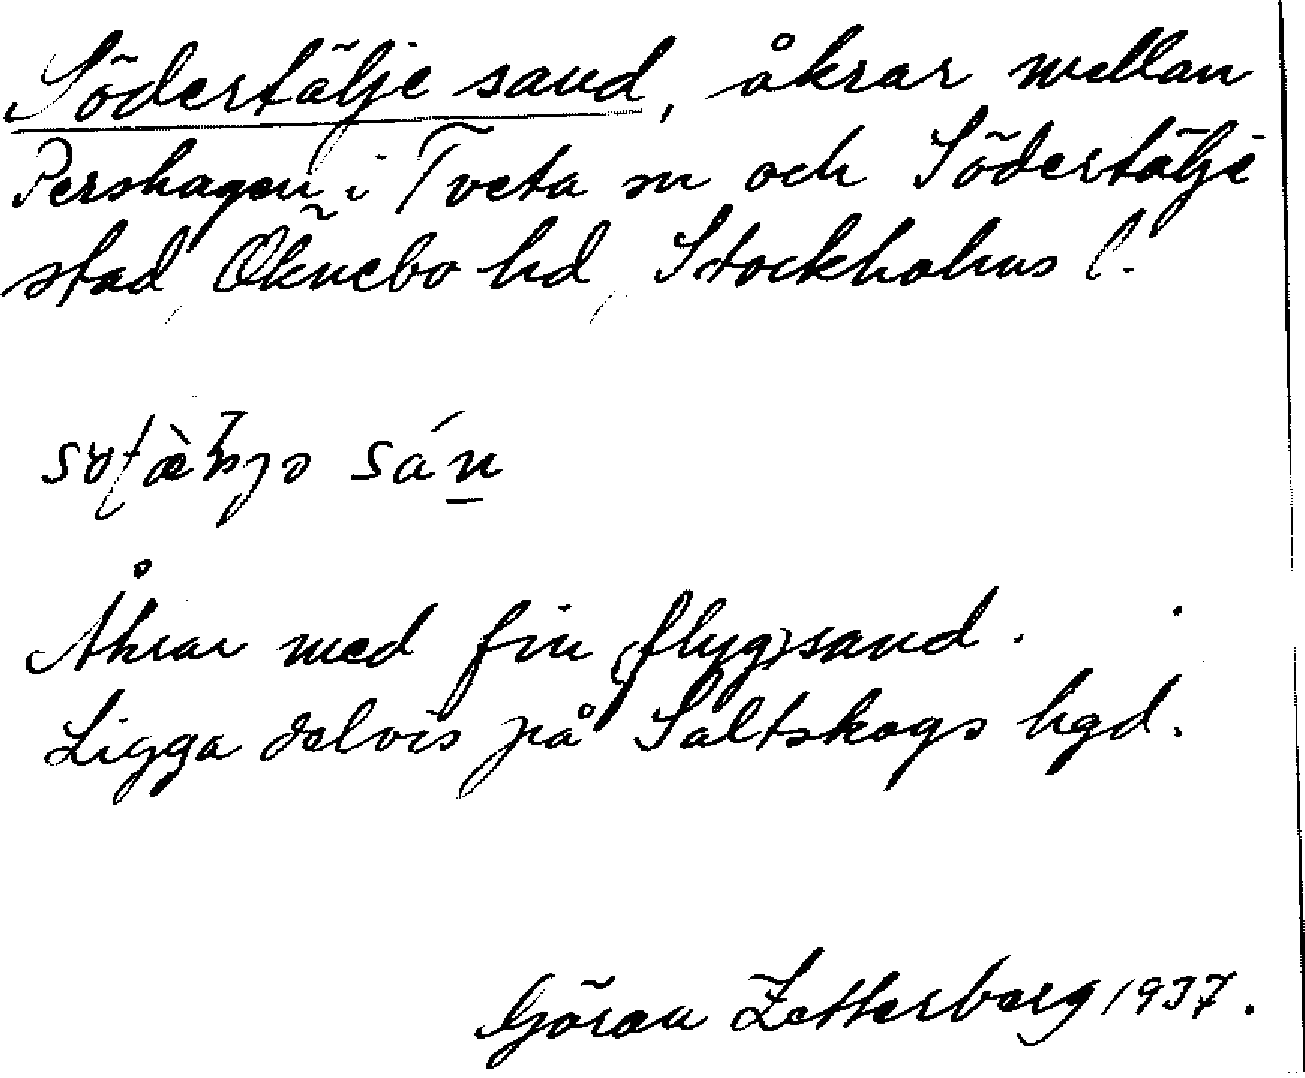 Södertälje sand, åkrar mellan
Pershagen i Tveta sn och Södertälje
stad, Öknebo hd, Stockholms l.
sán
Åkrar med fin (flyg)sand.
Ligga delvis på Saltskogs hgd.
Göran Zetterberg 1937.